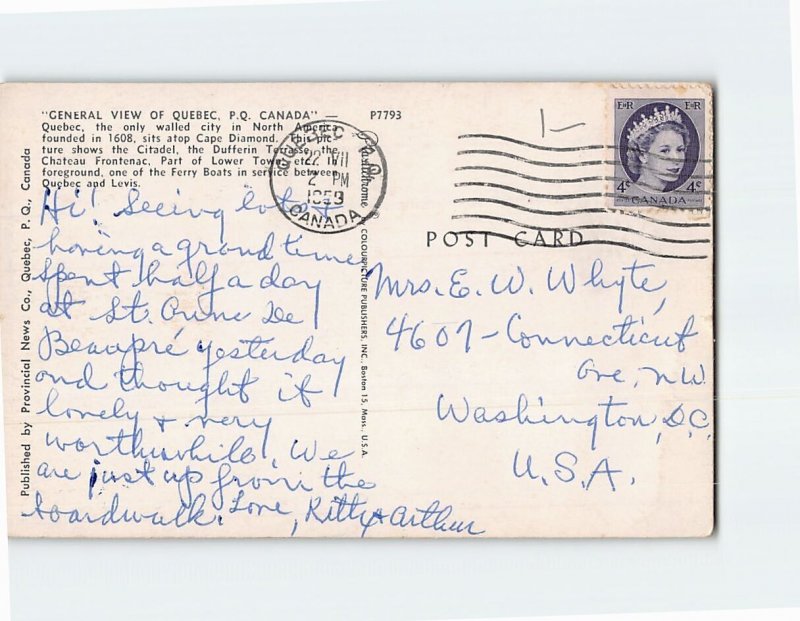 "GENERAL VIEW OF QUEBEC, P.Q. CANADA" —
Quebec, the only walled city in North America
founded in 1608, sits atop Cape Diamond. This pic-
ture shows the Citadel, the Dufferin Terrasse, the
Chateau Frontenac, Part of Lower Town etc.
foreground, one of the Ferry Boats in service between
Quebec and Levis.
P7793
QUEBEC P.Q.
22 VII
2 PM
1959
CANADA
EIIR EIIR
4¢ 4¢
CANADA
1—
POST CARD
Published by Provincial News Co., Quebec, P. Q., Canada
Plastichrome ® COLOURPICTURE PUBLISHERS, INC. Boston 15, Mass. U.S.A.
Hi! Seeing lots &
having a grand time.
Spent half a day
at St. Anne De
Beaupré yesterday
and thought it
lovely & very
worthwhile. We
are just up from the
boardwalk. Love,
Kitty & Arthur
Mrs. E. W. Whyte,
4607 - Connecticut
Ave, NW
Washington, D.C.
U.S.A.